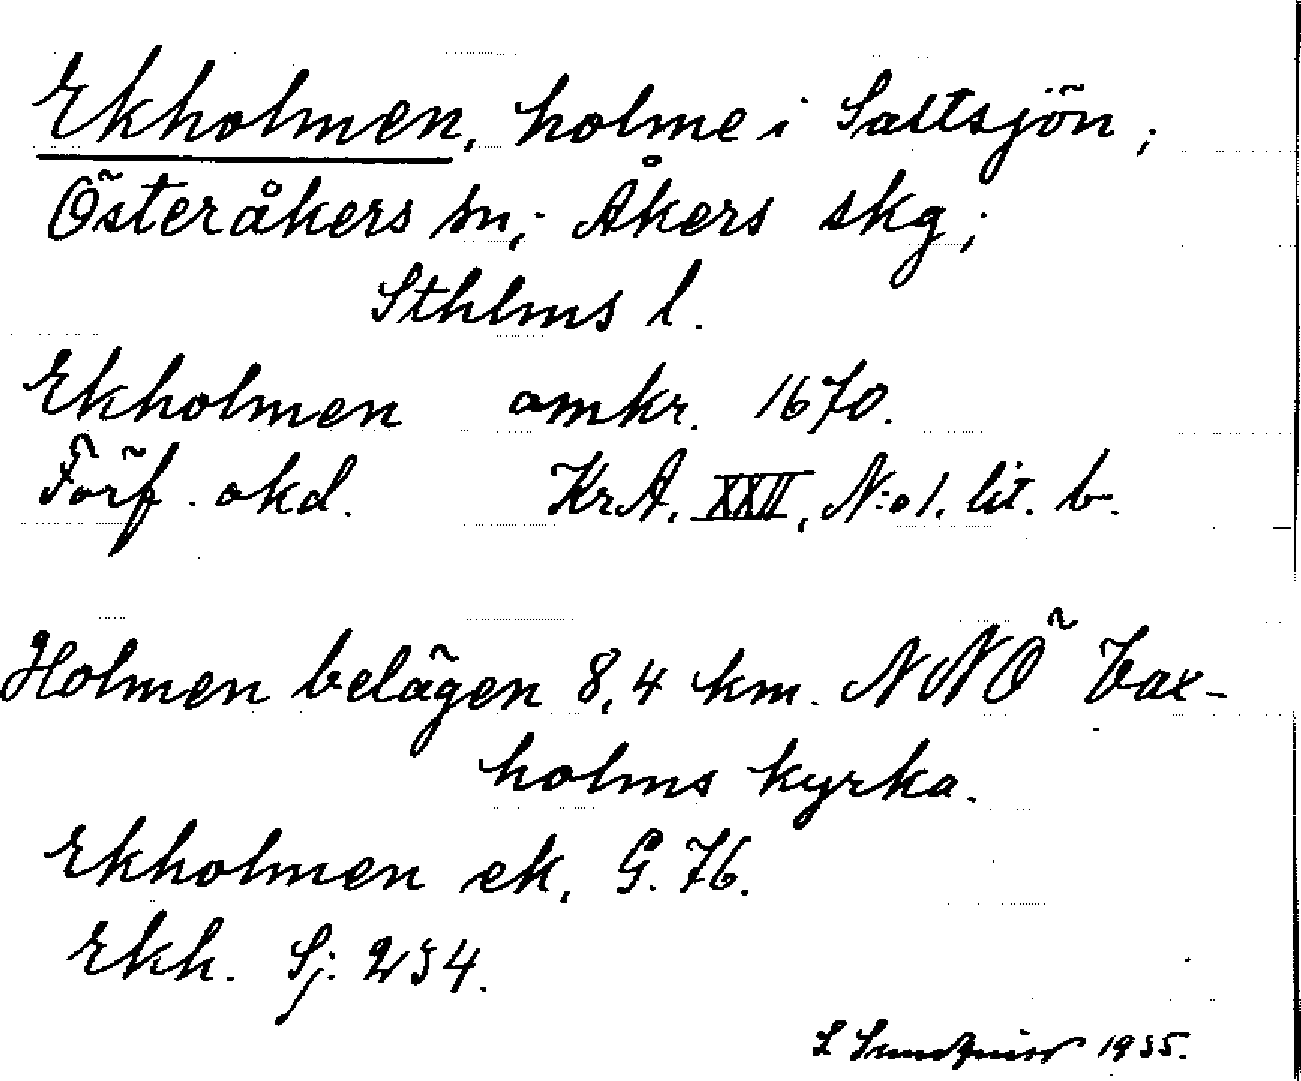 Ekholmen, holme i Saltsjön;
Österåkers sn; Åkers skg;
Sthlms l.
Ekholmen omkr. 1670.
Förf. okd. KrA. XXII, N:o 1. lit. b.
Holmen belägen 8,4 km. NNÖ Vax-
holms kyrka.
Ekholmen ek. G. 76.
Ekh. Sj: 234.
L Sundquist 1935.